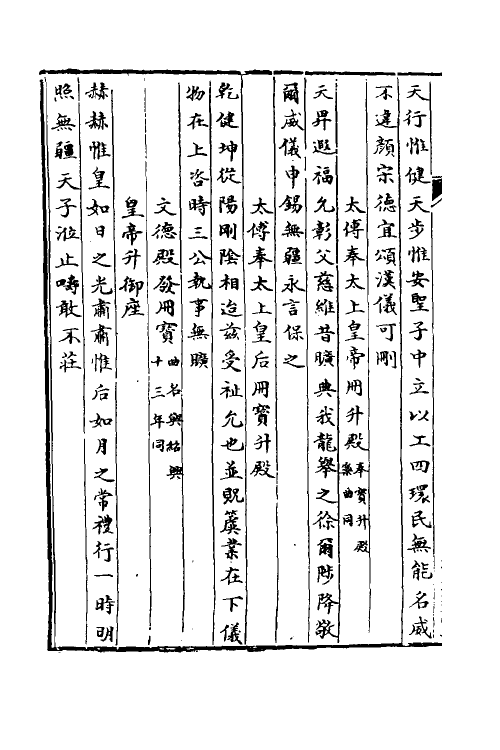 天行惟健天步惟安聖子中立以工四環民無能名威
不違顏宗德宜頌漢儀可刪
太傅奉太上皇帝冊升殿奉寶升殿樂曲同
天昇遐福允彰父慈維昔曠典我龍舉之徐爾陟降敬
爾威儀申錫無疆永言保之
太傅奉太上皇后冊寶升殿
乾健坤從陽剛陰相迨茲受祉允也並貺簴業在下儀
物在上咨時三公執事無曠
文德殿發冊寶曲名與紹興十三年同
皇帝升御座
赫赫惟皇如日之光肅肅惟后如月之常禮行一時明
照無疆天子涖止疇敢不莊